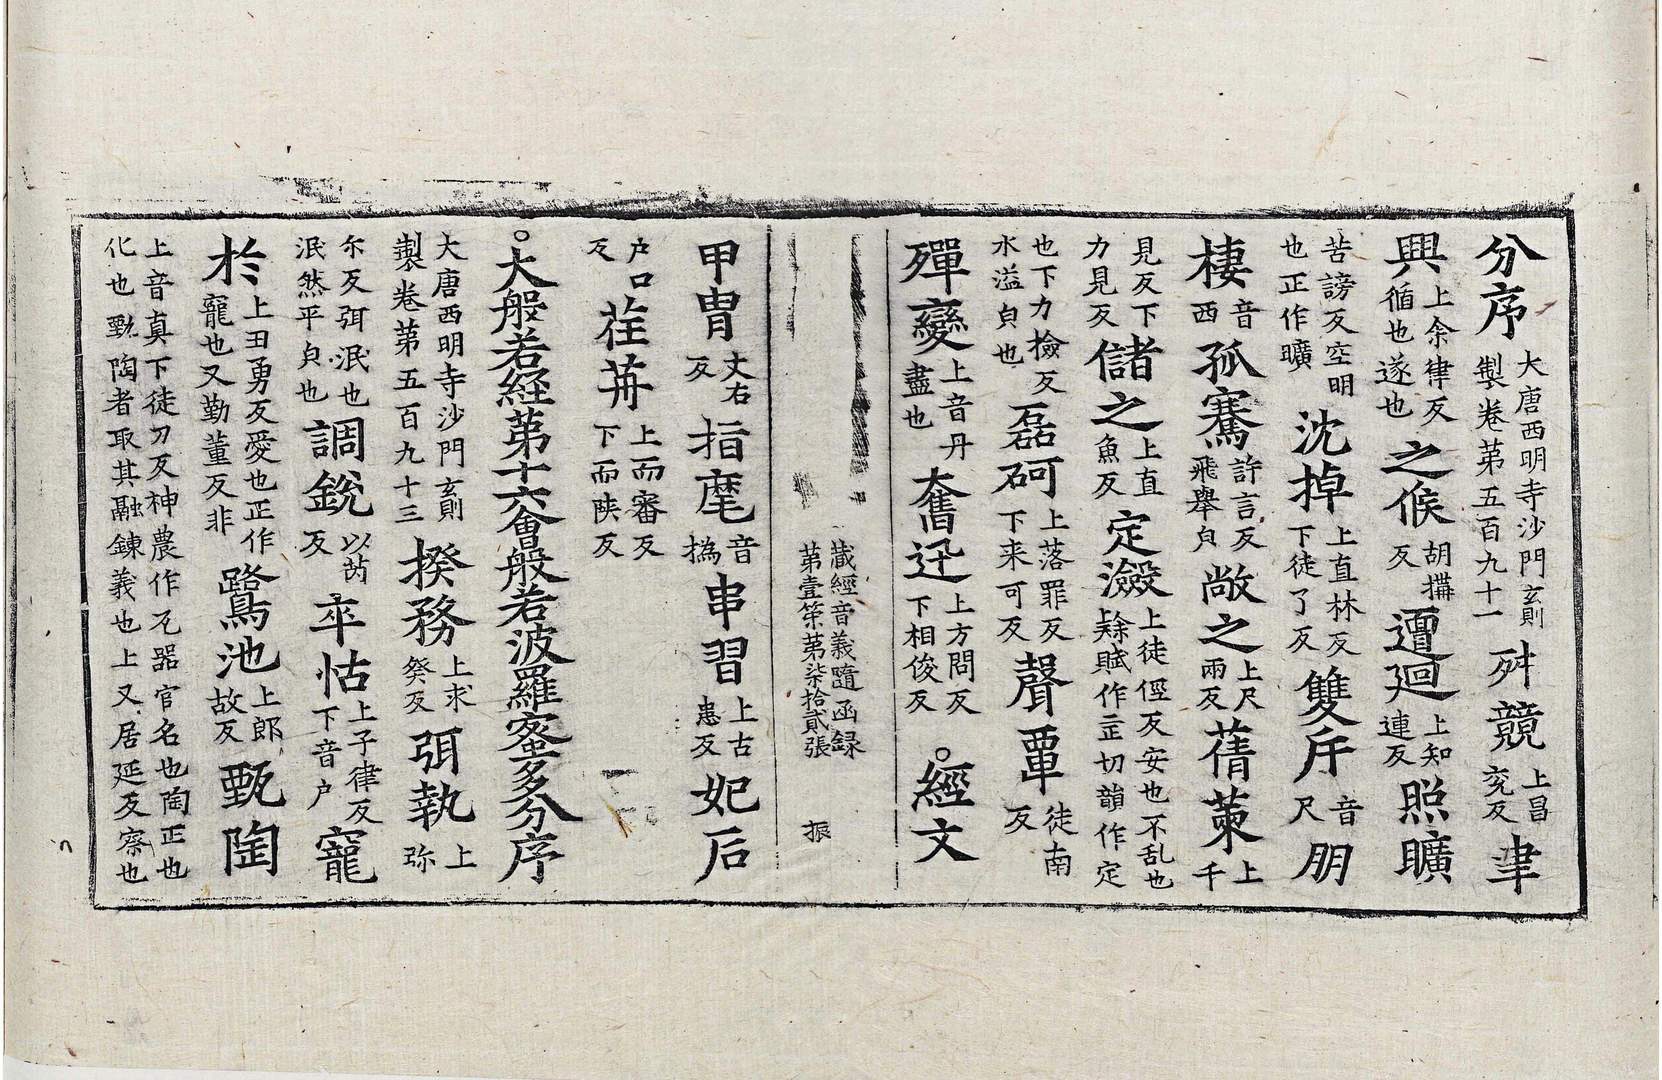 分序大唐西明寺沙門玄則製卷第五百九十一舛競上昌兖反聿
興上余律反循也遂也之候胡搆反邅迴上知連反照曠
苦謗反空明也正作曠沈掉上直林反下徒了反雙斥音尺朋
棲音西孤騫許言反飛舉皃敞之上尺兩反蒨萰上千
見反下力見反儲之上直魚反定澱上徒徑反安也不乱也𨻶賦作㱏切韻作定
也下力撿反水溢皃也磊砢上落罪反下来可反聲覃徒南反
殫變上音丹盡也奮迅上方問反下相俊反。經文
藏經音義隨函録第壹筞第柒拾貳張 振
甲冑丈右反指麾音撝串習上古患反妃后
戶口反荏苒上而審反下而陕反
。大般若経苐十六會般若波羅蜜多分序
大唐西明寺沙門玄則製卷第五百九十三揆務上求癸反弭執上弥
尔反弭泯也泯然平皃也調銳以芮反卒怙上子律反下音戶寵
於上丑勇反愛也正作寵也又勤董反非鷺池上郎故反甄陶
上音真下徒刀反神農作瓦器官名也陶正也化也甄陶者取其融鍊義也上又居延反察也